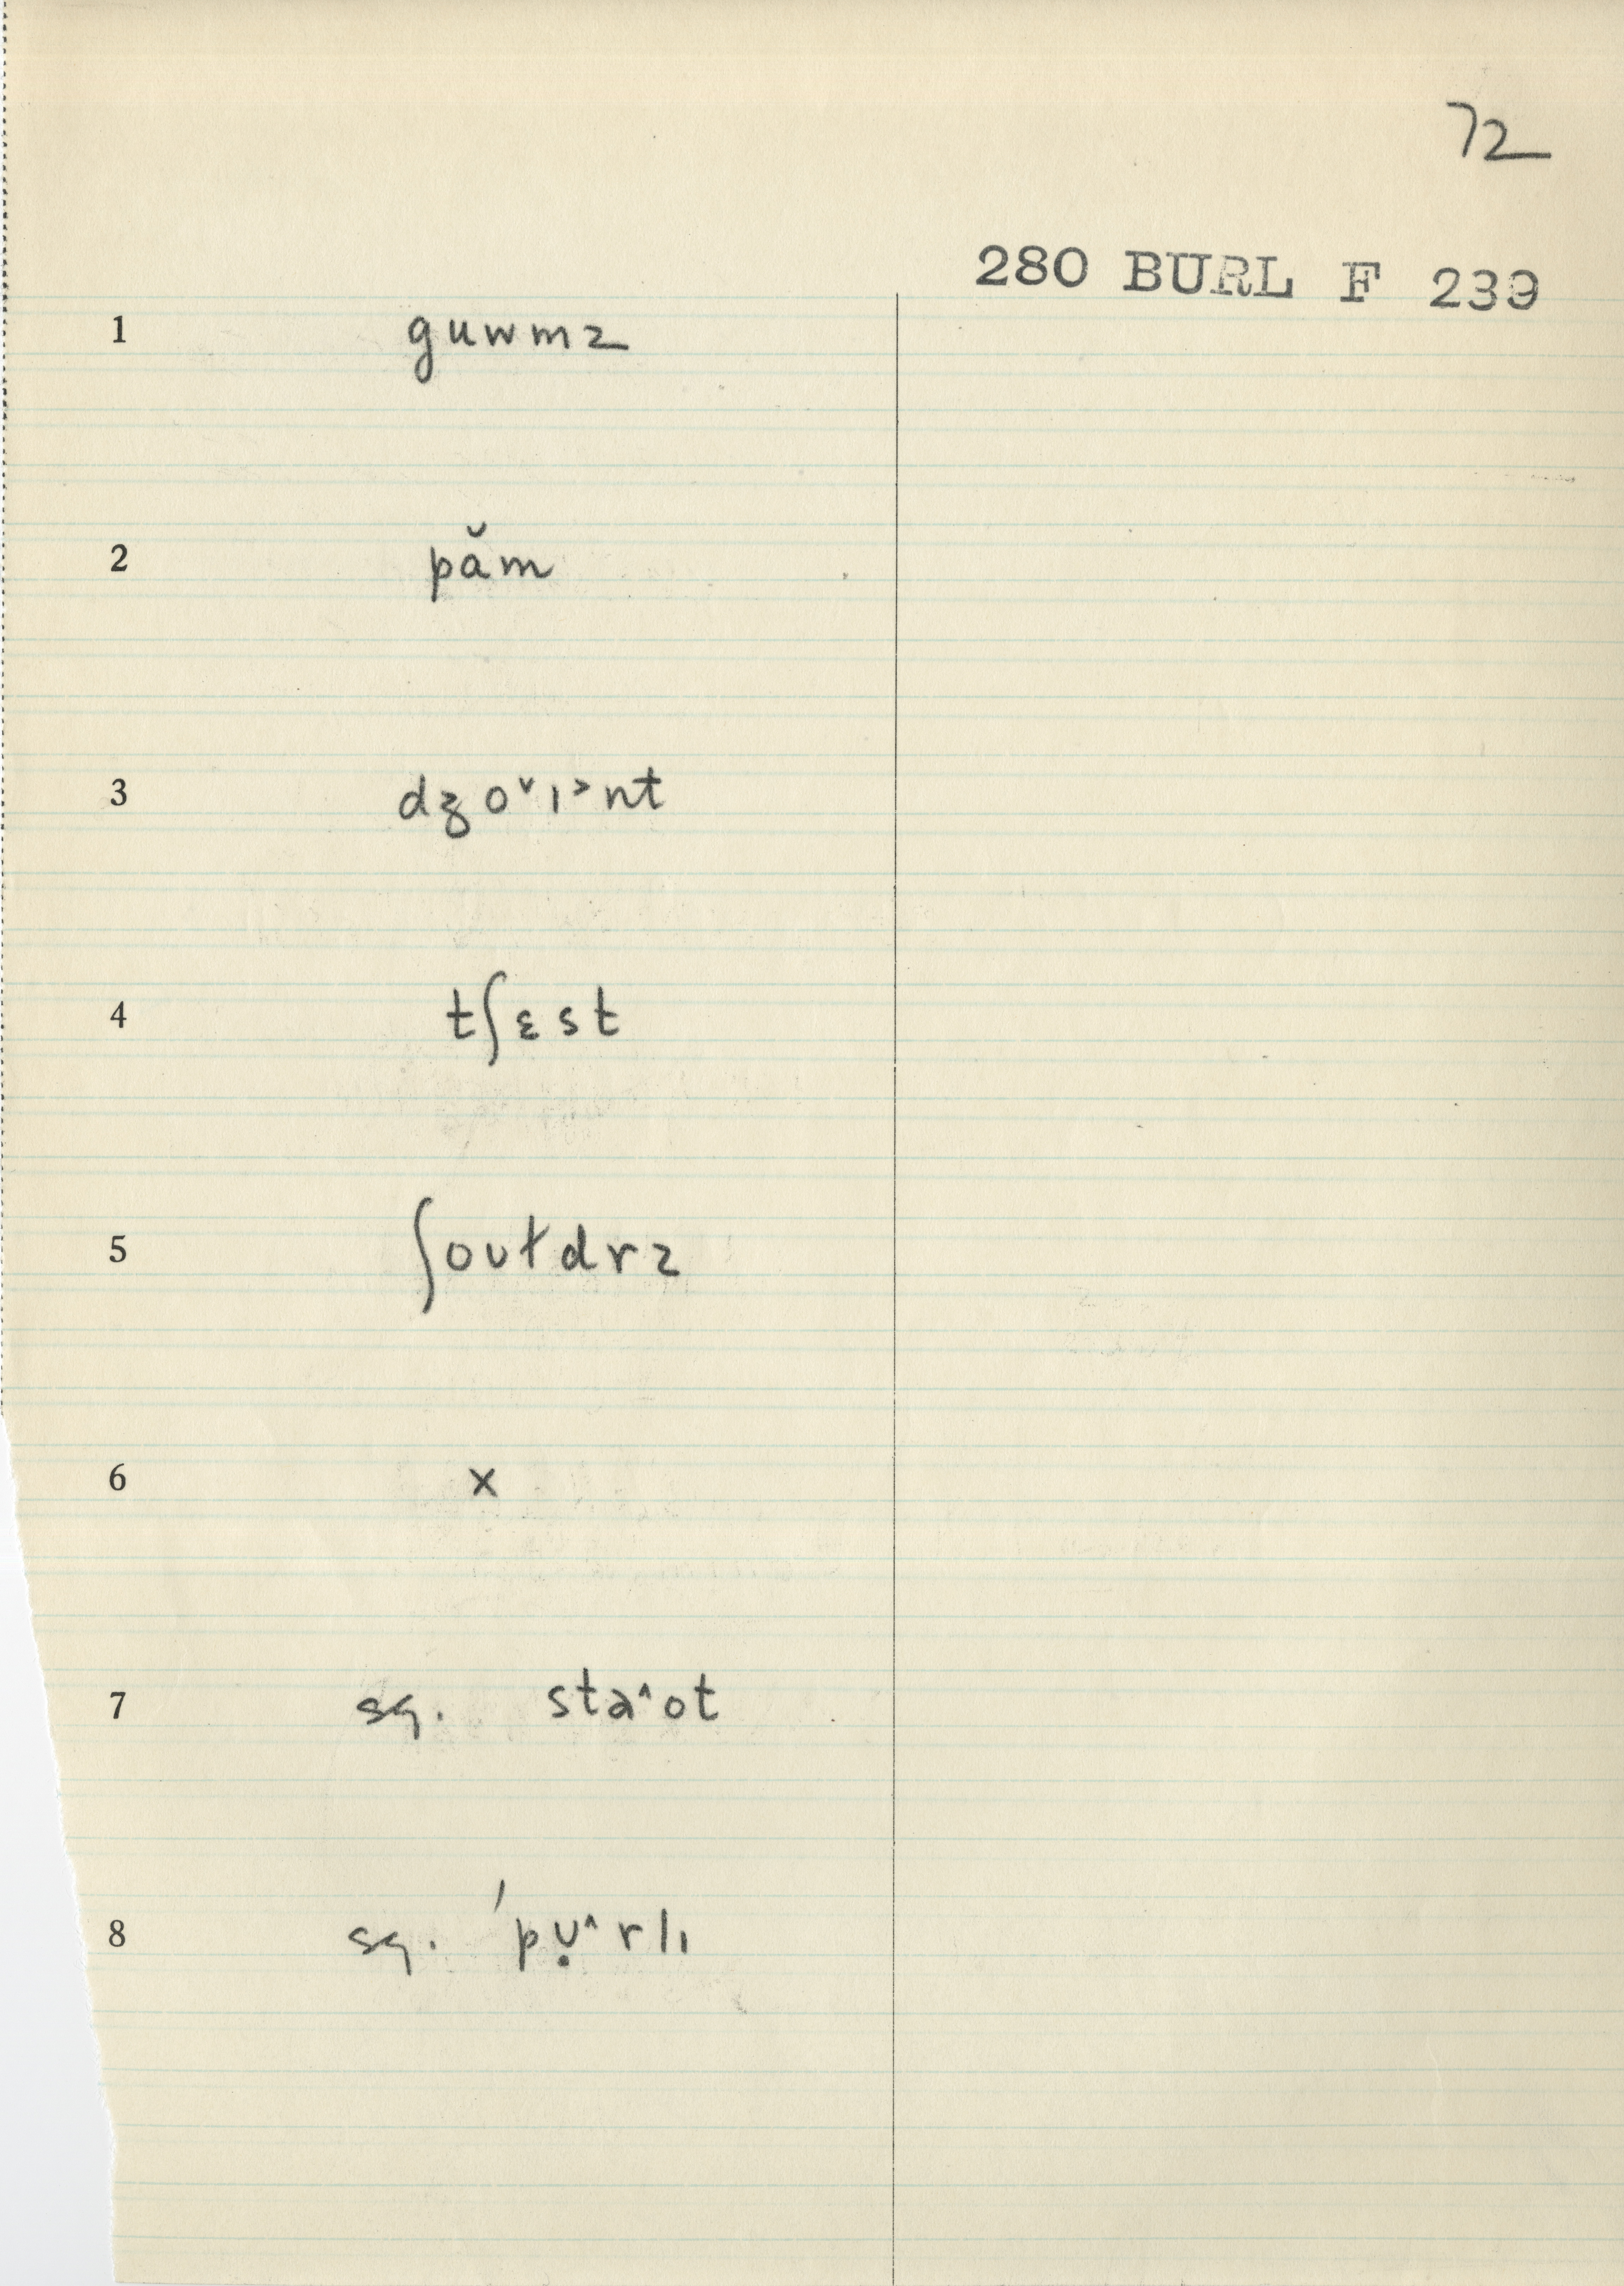 72
280 BURL F 239
1 guwmz
2 păm
3 dʒo˅ɪ˃nt
4 tʃɛst
5 ʃoʊtdrz
6 x
7 sq. sta˄ot
8 sq. ˈpʊ̣˄rlɪ